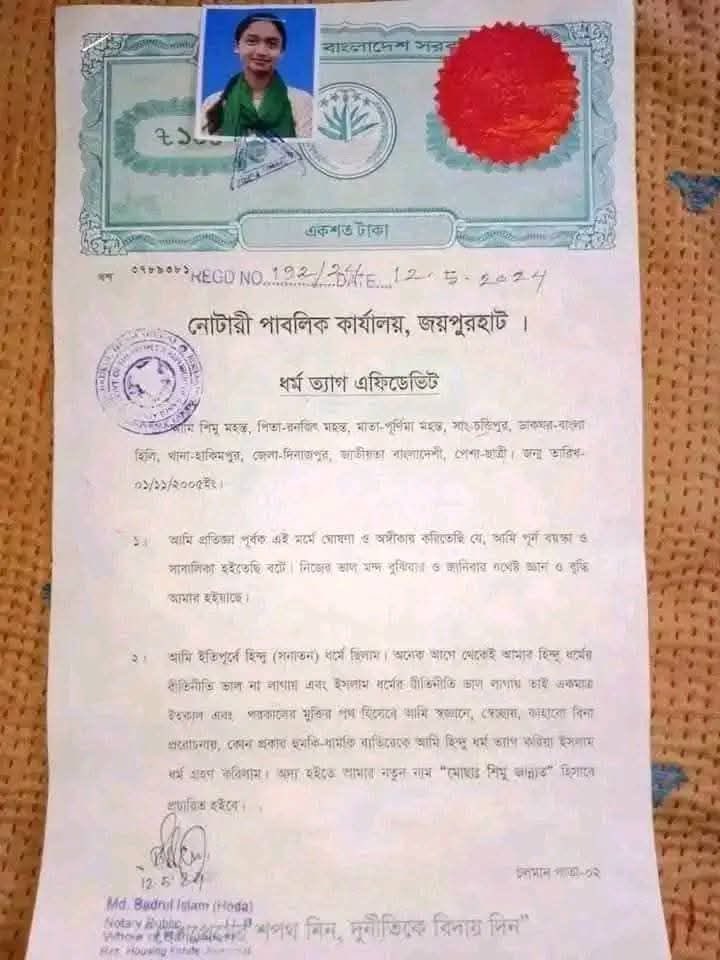 বাংলাদেশ সরকার
৳১০০
একশত টাকা
৩৭৮৯৩৮১ REGD NO. 192/24 DATE. 12.5.2024
নোটারী পাবলিক কার্যালয়, জয়পুরহাট ।
ধর্ম ত্যাগ এফিডেভিট
আমি শিমু মহন্ত, পিতা-রনজিৎ মহন্ত, মাতা-পূর্ণিমা মহন্ত, সাং-চন্ডিপুর, ডাকঘর-বাংলা
হিলি, থানা-হাকিমপুর, জেলা-দিনাজপুর, জাতীয়তা বাংলাদেশী, পেশা-ছাত্রী। জন্ম তারিখ-
০১/১১/২০০৫ইং।
১। আমি প্রতিজ্ঞা পূর্বক এই মর্মে ঘোষণা ও অঙ্গীকার করিতেছি যে, আমি পূর্ন বয়স্কা ও
সাবালিকা হইতেছি বটে। নিজের ভাল মন্দ বুঝিবার ও জানিবার যথেষ্ট জ্ঞান ও বুদ্ধি
আমার হইয়াছে।
২। আমি ইতিপূর্বে হিন্দু (সনাতন) ধর্মে ছিলাম। অনেক আগে থেকেই আমার হিন্দু ধর্মের
রীতিনীতি ভাল না লাগায় এবং ইসলাম ধর্মের রীতিনীতি ভাল লাগায় তাই একমাত্র
ইহকাল এবং পরকালের মুক্তির পথ হিসেবে আমি স্বজ্ঞানে, স্বেচ্ছায়, কাহারো বিনা
প্ররোচনায়, কোন প্রকার হুমকি-ধামকি ব্যতিরেকে আমি হিন্দু ধর্ম ত্যাগ করিয়া ইসলাম
ধর্ম গ্রহণ করিলাম। অদ্য হইতে আমার নতুন নাম “মোছাঃ শিমু জান্নাত” হিসাবে
প্রচারিত হইবে।
12.5.24
চলমান পাতা-০২
Md. Badrul Islam (Hoda)
Notary Public
শপথ নিন, দুর্নীতিকে বিদায় দিন”
Housing Estate